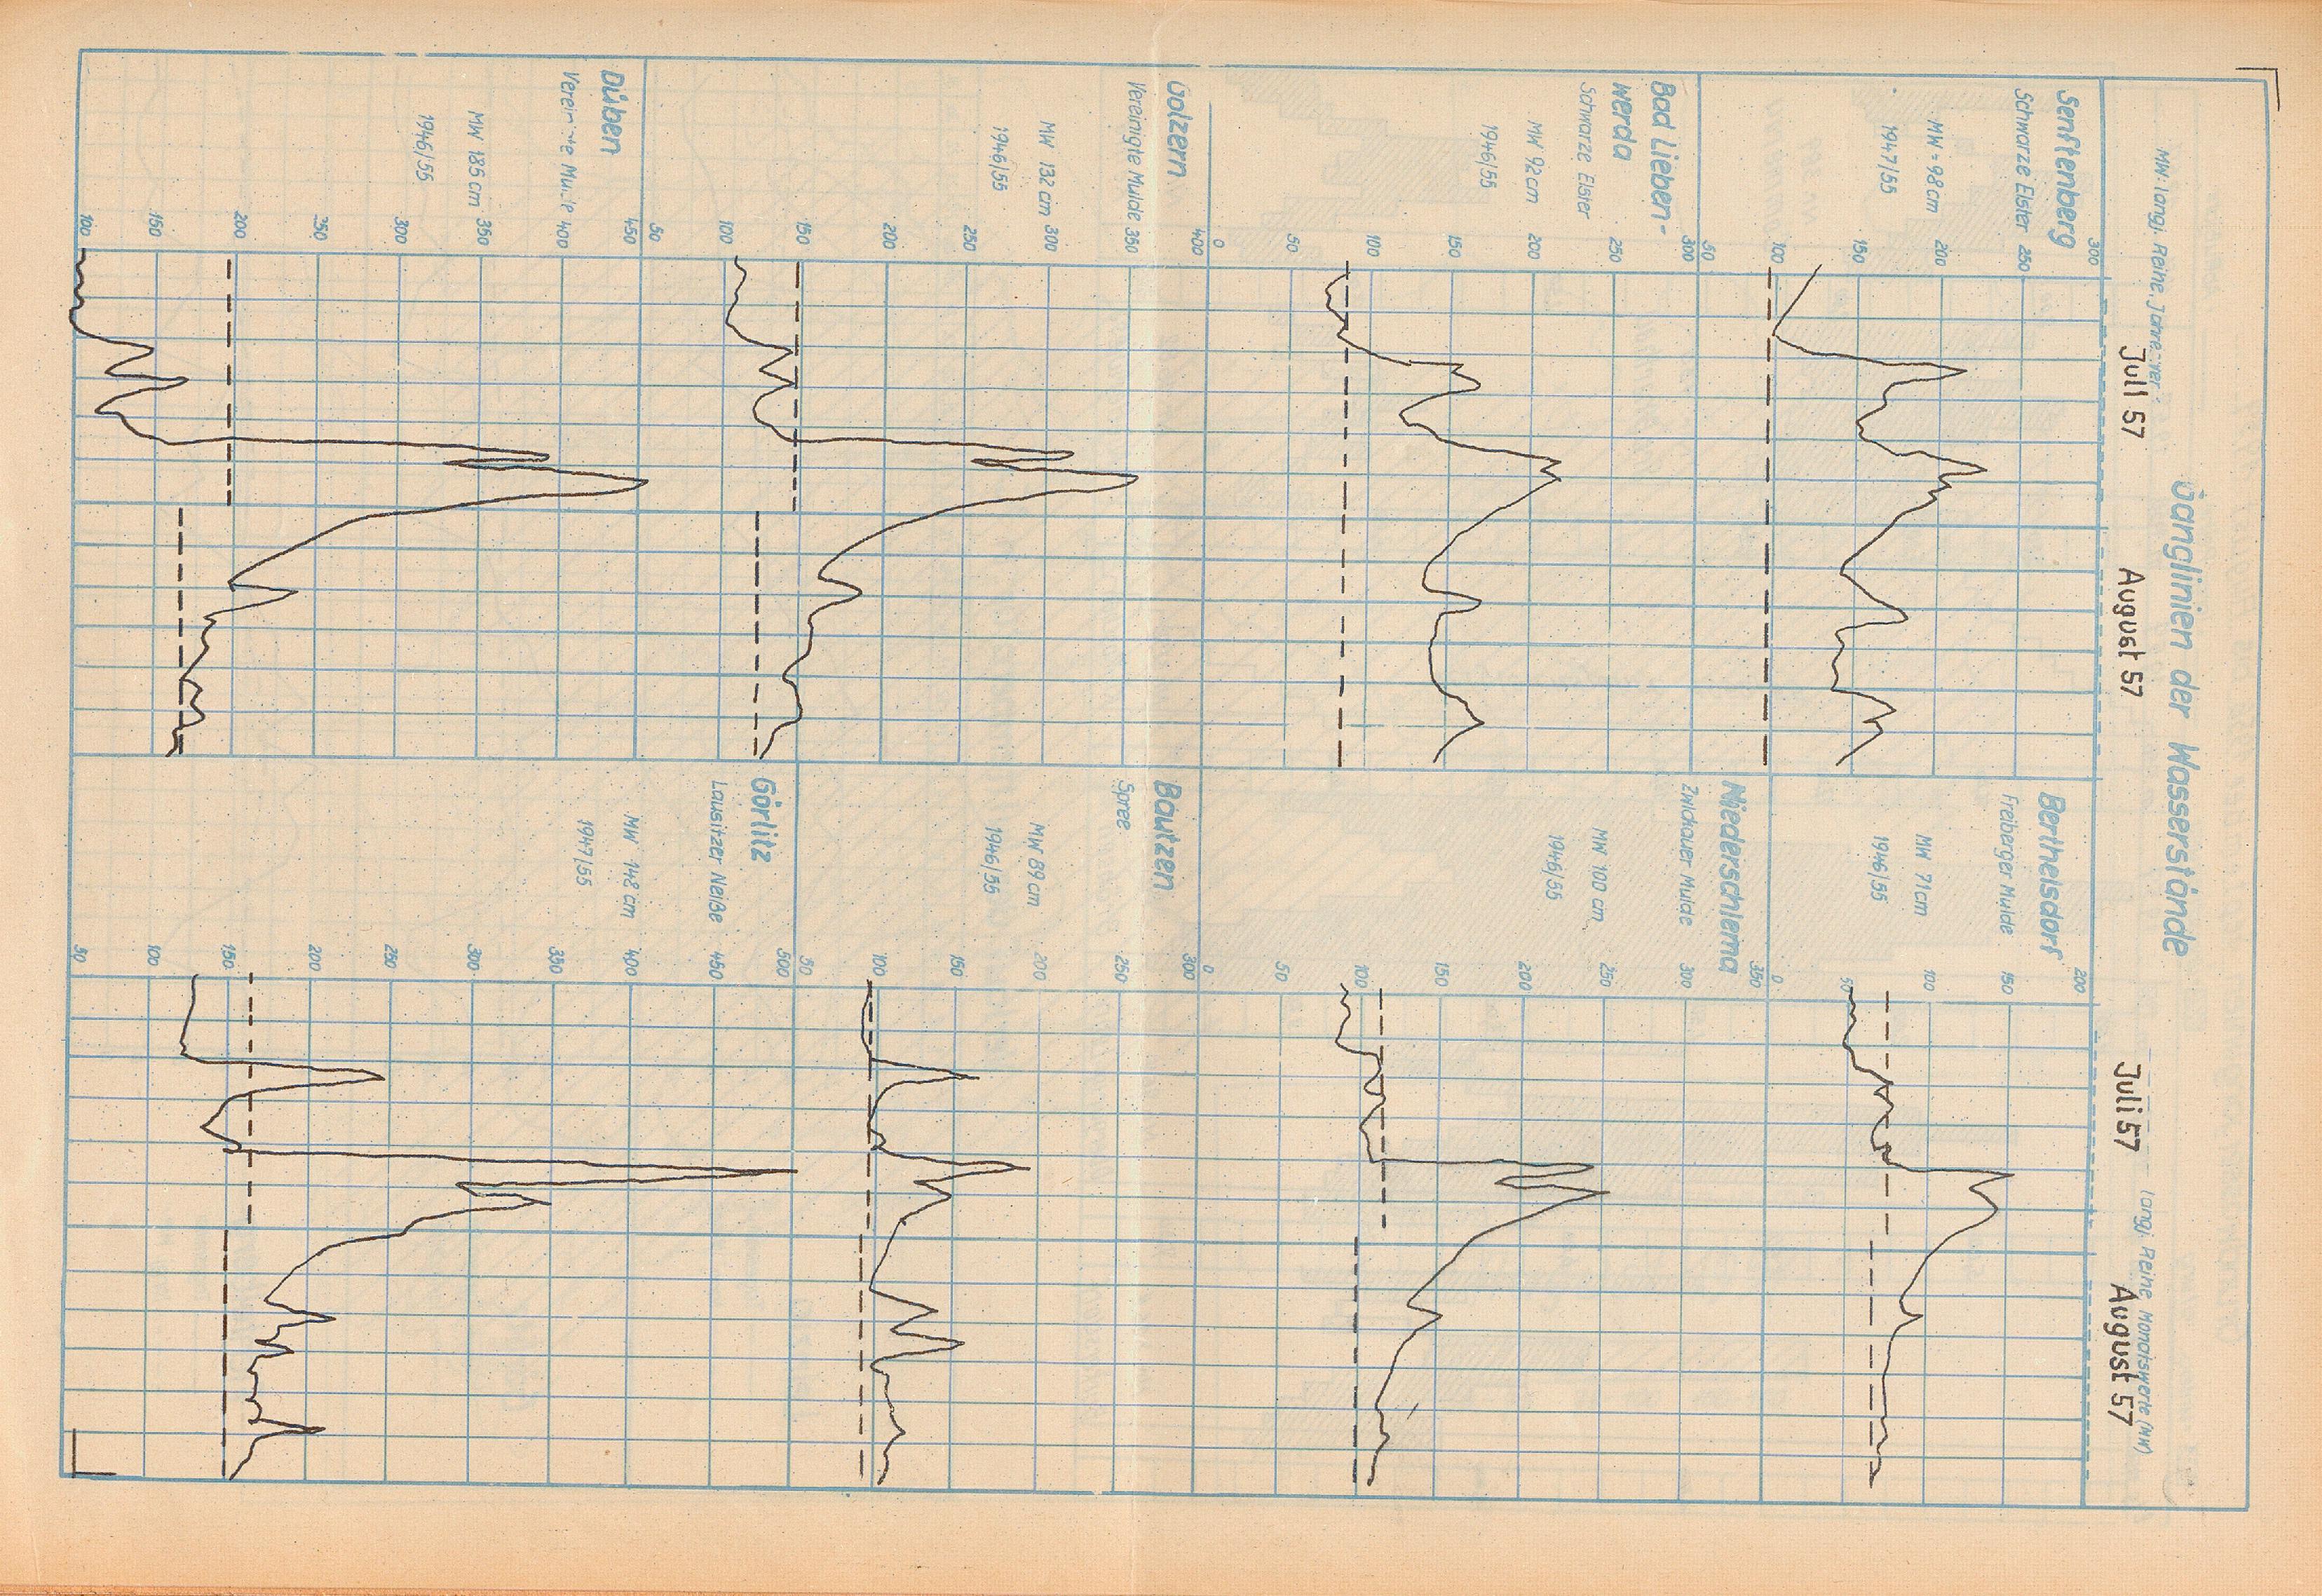 Ganglinien der Wasserstände
MW: langj. Reihe, Jahre
langj. Reihe Monatswerte (MW)
Juli 57
August 57
Juli 57
August 57
Senftenberg
Schwarze Elster
MW = 98 cm
1947/55
300
250
200
150
100
50
Bad Lieben-
werda
Schwarze Elster
MW 92 cm
1946/55
300
250
200
150
100
50
0
Golzern
Vereinigte Mulde
MW 132 cm
1946/55
400
350
300
250
200
150
100
50
Düben
MW 185 cm
1946/55
450
400
350
300
250
200
150
100
Berthelsdorf
Freiberger Mulde
MW 71 cm
1946/55
200
150
100
50
0
Niederschlema
Zwickauer Mulde
MW 100 cm
1946/55
350
300
250
200
150
100
50
0
Bautzen
Spree
MW 89 cm
1946/55
300
250
200
150
100
50
Görlitz
Lausitzer Neiße
MW 148 cm
1947/55
500
450
400
350
300
250
200
150
100
50